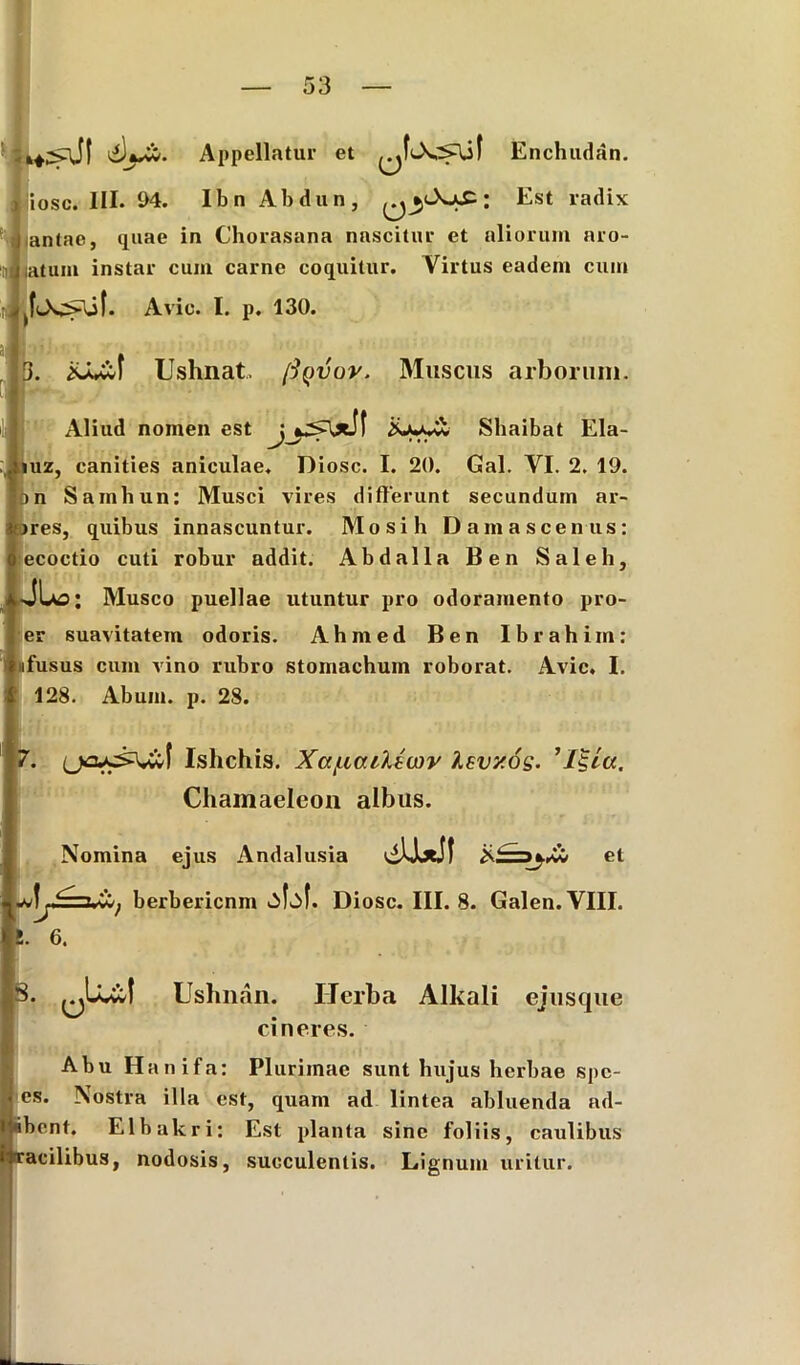 — 53 —
شوك الجم. Appellatur et انجدان Enchudân.
iosc. III. 94. Ibn Abdun, عبدون: Est radix
antae, quae in Chorasana nascitur et aliorum aro-
atum instar cum carne coquitur. Virtus eadem cum
انجدان. Avic. I. p. 130.
اشنة Ushnat. βρύον. Muscus arborum.
Aliud nomen est شيبة العجوز Shaibat Ela-
uz, canities aniculae. Diosc. I. 20. Gal. VI. 2. 19.
n Samhun: Musci vires differunt secundum ar-
res, quibus innascuntur. Mosih Damascenus:
ecoctio cuti robur addit. Abdalla Ben Saleh,
صالح: Musco puellae utuntur pro odoramento pro-
er suavitatem odoris. Ahmed Ben Ibrahim:
fusus cum vino rubro stomachum roborat. Avic. I.
128. Abum. p. 28.
7. اشخيص Ishchis. Χαμαιλέων λευκός. Ἰξία.
Chamaeleon albus.
Nomina ejus Andalusia شوكة العلك et
berbericnm اداد. Diosc. III. 8. Galen. VIII.
6.
8. اشنان Ushnân. Herba Alkali ejusque
cineres.
Abu Hanifa: Plurimae sunt hujus herbae spe-
es. Nostra illa est, quam ad lintea abluenda ad-
ibent. Elbakri: Est planta sine foliis, caulibus
racilibus, nodosis, succulentis. Lignum uritur.